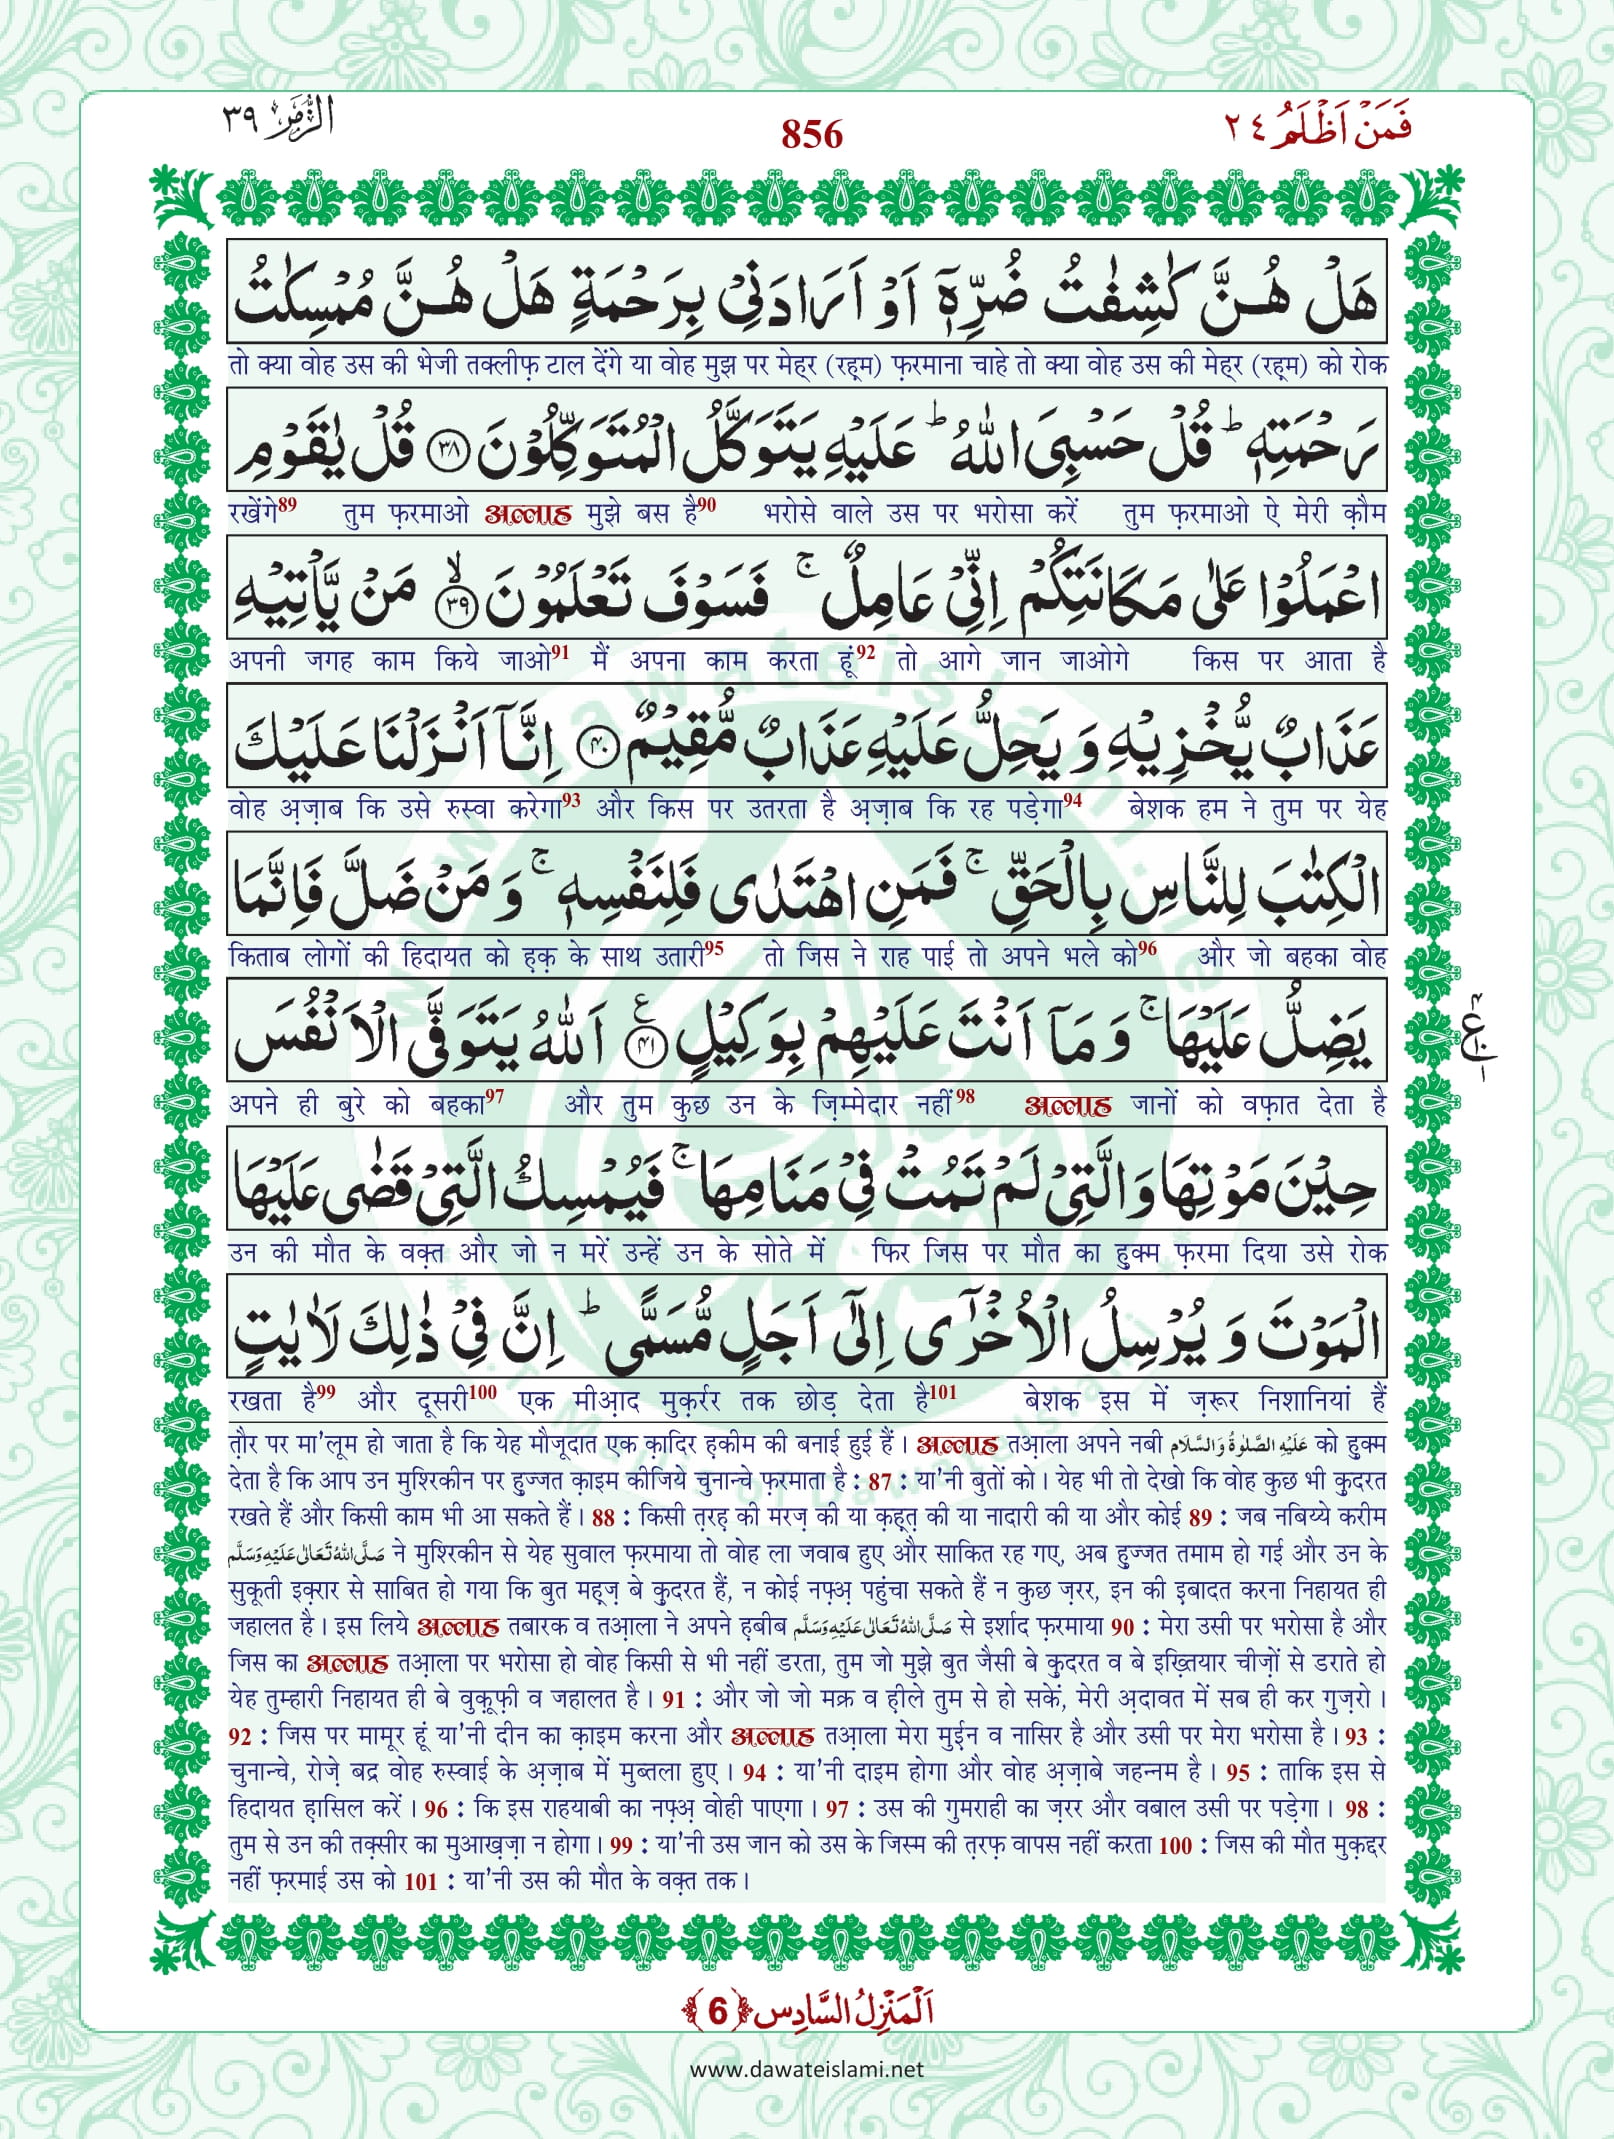 الزُّمَر ٣٩
856
فَمَنْ اَظْلَمُ ٢٤
هَلْ هُنَّ كٰشِفٰتُ ضُرِّهٖۤ اَوْ اَرَادَنِیْ بِرَحْمَةٍ هَلْ هُنَّ مُمْسِكٰتُ
तो क्या वोह उस की भेजी तक्लीफ़ टाल देंगे या वोह मुझ पर मेह्र (रह़्म) फ़रमाना चाहे तो क्या वोह उस की मेह्र (रह़्म) को रोक
رَحْمَتِهٖ ؕ قُلْ حَسْبِیَ اللّٰهُ ؕ عَلَیْهِ یَتَوَكَّلُ الْمُتَوَكِّلُوْنَ ﴿۳۸﴾ قُلْ یٰقَوْمِ
रखेंगे89 तुम फ़रमाओ अल्लाह मुझे बस है90 भरोसे वाले उस पर भरोसा करें तुम फ़रमाओ ऐ मेरी क़ौम
اعْمَلُوْا عَلٰی مَكَانَتِكُمْ اِنِّیْ عَامِلٌ ۚ فَسَوْفَ تَعْلَمُوْنَ ﴿ۙ۳۹﴾ مَنْ یَّاْتِیْهِ
अपनी जगह काम किये जाओ91 मैं अपना काम करता हूं92 तो आगे जान जाओगे किस पर आता है
عَذَابٌ یُّخْزِیْهِ وَ یَحِلُّ عَلَیْهِ عَذَابٌ مُّقِیْمٌ ﴿۴۰﴾ اِنَّاۤ اَنْزَلْنَا عَلَیْكَ
वोह अ़ज़ाब कि उसे रुस्वा करेगा93 और किस पर उतरता है अ़ज़ाब कि रह पड़ेगा94 बेशक हम ने तुम पर येह
الْكِتٰبَ لِلنَّاسِ بِالْحَقِّ ۚ فَمَنِ اهْتَدٰی فَلِنَفْسِهٖ ۚ وَ مَنْ ضَلَّ فَاِنَّمَا
किताब लोगों की हिदायत को ह़क़ के साथ उतारी95 तो जिस ने राह पाई तो अपने भले को96 और जो बहका वोह
یَضِلُّ عَلَیْهَا ۚ وَ مَاۤ اَنْتَ عَلَیْهِمْ بِوَكِیْلٍ ﴿۴۱﴾ع اَللّٰهُ یَتَوَفَّی الْاَنْفُسَ
अपने ही बुरे को बहका97 और तुम कुछ उन के ज़िम्मेदार नहीं98 अल्लाह जानों को वफ़ात देता है
حِیْنَ مَوْتِهَا وَ الَّتِیْ لَمْ تَمُتْ فِیْ مَنَامِهَا ۚ فَیُمْسِكُ الَّتِیْ قَضٰی عَلَیْهَا
उन की मौत के वक़्त और जो न मरें उन्हें उन के सोते में फिर जिस पर मौत का हुक्म फ़रमा दिया उसे रोक
الْمَوْتَ وَ یُرْسِلُ الْاُخْرٰۤی اِلٰۤی اَجَلٍ مُّسَمًّی ؕ اِنَّ فِیْ ذٰلِكَ لَاٰیٰتٍ
रखता है99 और दूसरी100 एक मीआ़द मुक़र्रर तक छोड़ देता है101 बेशक इस में ज़रूर निशानियां हैं
त़ौर पर मा'लूम हो जाता है कि येह मौजूदात एक क़ादिर ह़कीम की बनाई हुई हैं। अल्लाह तआ़ला अपने नबी عَلَيْهِ الصَّلٰوةُ وَالسَّلَام को हुक्म
देता है कि आप उन मुश्रिकीन पर हुज्जत क़ाइम कीजिये चुनान्चे फ़रमाता है : 87 : या'नी बुतों को। येह भी तो देखो कि वोह कुछ भी क़ुदरत
रखते हैं और किसी काम भी आ सकते हैं। 88 : किसी त़रह़ की मरज़ की या क़ह़त़ की या नादारी की या और कोई 89 : जब नबिय्ये करीम
صَلَّى اللّٰهُ تَعَالٰى عَلَيْهِ وَسَلَّم ने मुश्रिकीन से येह सुवाल फ़रमाया तो वोह ला जवाब हुए और साकित रह गए, अब हुज्जत तमाम हो गई और उन के
सुकूती इक़्रार से साबित हो गया कि बुत मह़्ज़ बे क़ुदरत हैं, न कोई नफ़्अ़ पहुंचा सकते हैं न कुछ ज़रर, इन की इ़बादत करना निहायत ही
जहालत है। इस लिये अल्लाह तबारक व तआ़ला ने अपने ह़बीब صَلَّى اللّٰهُ تَعَالٰى عَلَيْهِ وَسَلَّم से इर्शाद फ़रमाया 90 : मेरा उसी पर भरोसा है और
जिस का अल्लाह तआ़ला पर भरोसा हो वोह किसी से भी नहीं डरता, तुम जो मुझे बुत जैसी बे क़ुदरत व बे इख़्तियार चीज़ों से डराते हो
येह तुम्हारी निहायत ही बे वुक़ूफ़ी व जहालत है। 91 : और जो जो मक्र व ह़ीले तुम से हो सकें, मेरी अ़दावत में सब ही कर गुज़रो।
92 : जिस पर मामूर हूं या'नी दीन का क़ाइम करना और अल्लाह तआ़ला मेरा मुई़न व नासिर है और उसी पर मेरा भरोसा है। 93 :
चुनान्चे, रोज़े बद्र वोह रुस्वाई के अ़ज़ाब में मुब्तला हुए। 94 : या'नी दाइम होगा और वोह अ़ज़ाबे जहन्नम है। 95 : ताकि इस से
हिदायत ह़ासिल करें। 96 : कि इस राहयाबी का नफ़्अ़ वोही पाएगा। 97 : उस की गुमराही का ज़रर और वबाल उसी पर पड़ेगा। 98 :
तुम से उन की तक़्सीर का मुआख़ज़ा न होगा। 99 : या'नी उस जान को उस के जिस्म की त़रफ़ वापस नहीं करता 100 : जिस की मौत मुक़द्दर
नहीं फ़रमाई उस को 101 : या'नी उस की मौत के वक़्त तक।
اَلْمَنْزِلُ السَّادِس ﴿6﴾
www.dawateislami.net